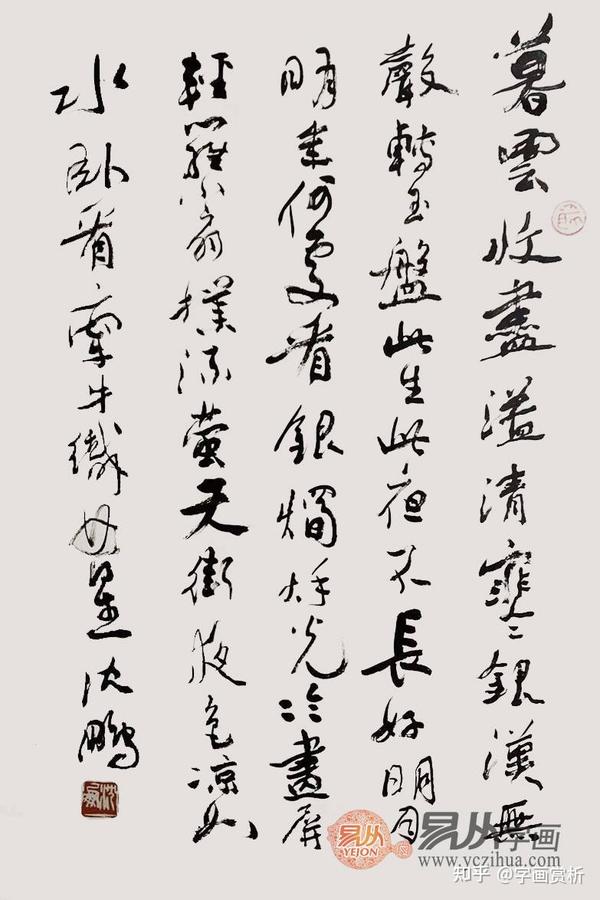 暮雲收盡溢清寒銀漢無
聲轉玉盤此生此夜不長好明月
明年何處看銀燭秋光冷畫屏
輕羅小扇撲流螢天街夜色凉如
水卧看牽牛織女星沈鵬
易从
YEJON
易从字画
www.yczihua.com
知乎 @字画赏析